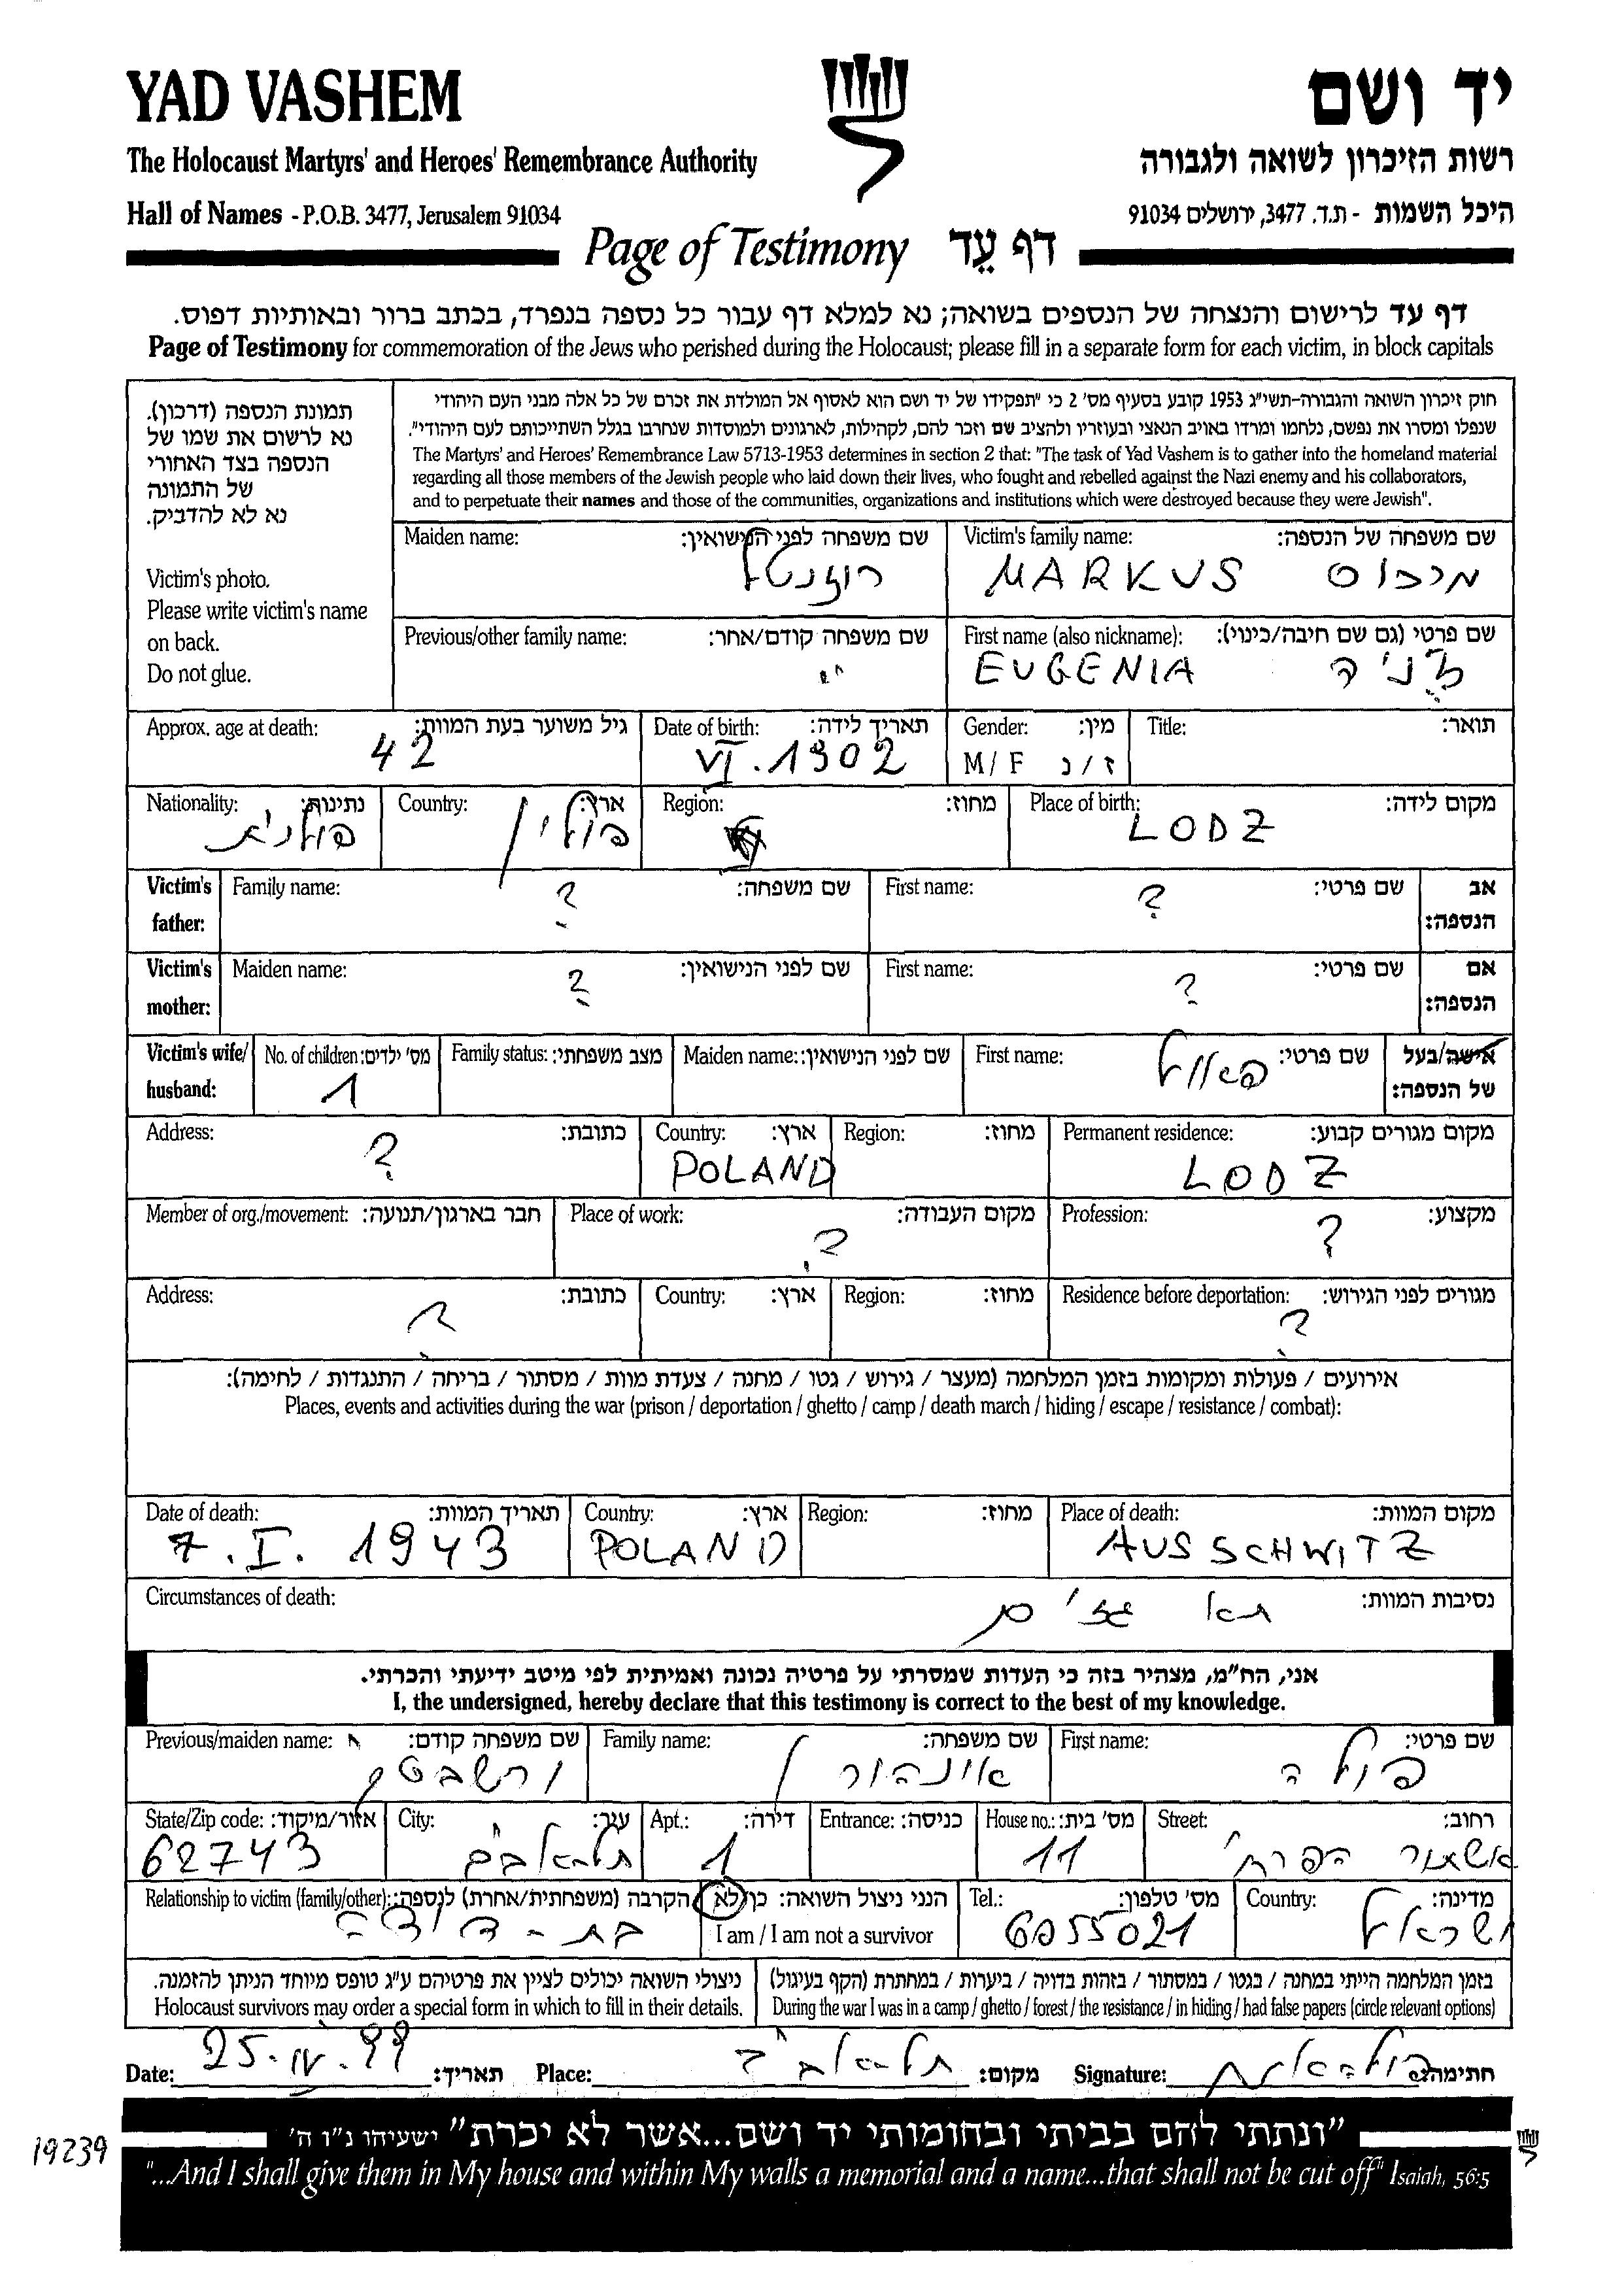 YAD VASHEM
יד ושם
The Holocaust Martyrs' and Heroes' Remembrance Authority
רשות הזיכרון לשואה ולגבורה
Hall of Names - P.O.B. 3477, Jerusalem 91034
היכל השמות - ת.ד. 3477, ירושלים 91034
Page of Testimony דף עֵד
דף עד לרישום והנצחה של הנספים בשואה; נא למלא דף עבור כל נספה בנפרד, בכתב ברור ובאותיות דפוס.
Page of Testimony for commemoration of the Jews who perished during the Holocaust; please fill in a separate form for each victim, in block capitals
תמונת הנספה (דרכון).
נא לרשום את שמו של
הנספה בצד האחורי
של התמונה
נא לא להדביק.
Victim's photo.
Please write victim's name
on back.
Do not glue.
חוק זיכרון השואה והגבורה-תשי"ג 1953 קובע בסעיף מס' 2 כי "תפקידו של יד ושם הוא לאסוף אל המולדת את זכרם של כל אלה מבני העם היהודי
שנפלו ומסרו את נפשם, נלחמו ומרדו באויב הנאצי ובעוזריו ולהציב שם וזכר להם, לקהילות, לארגונים ולמוסדות שנחרבו בגלל השתייכותם לעם היהודי".
The Martyrs' and Heroes' Remembrance Law 5713-1953 determines in section 2 that: "The task of Yad Vashem is to gather into the homeland material
regarding all those members of the Jewish people who laid down their lives, who fought and rebelled against the Nazi enemy and his collaborators,
and to perpetuate their names and those of the communities, organizations and institutions which were destroyed because they were Jewish".
Victim's family name: שם משפחה של הנספה:
MARKUS מרכוס
Maiden name: שם משפחה לפני הנישואין:
רוזנטל
First name (also nickname): שם פרטי (גם שם חיבה/כינוי):
EUGENIA ז'ניה
Previous/other family name: שם משפחה קודם/אחר:
Title: תואר:
Gender: מין:
M / F ז / נ
Date of birth: תאריך לידה:
VI. 1902
Approx. age at death: גיל משוער בעת המוות:
42
Place of birth: מקום לידה:
LODZ
Region: מחוז:
Country: ארץ:
פולין
Nationality: נתינות:
פולנית
Victim's father: אב הנספה:
First name: שם פרטי:
?
Family name: שם משפחה:
?
Victim's mother: אם הנספה:
First name: שם פרטי:
?
Maiden name: שם לפני הנישואין:
?
Victim's wife/ husband: אישה/בעל של הנספה:
First name: שם פרטי:
פאול
Maiden name: שם לפני הנישואין:
Family status: מצב משפחתי:
No. of children: מס' ילדים:
1
Permanent residence: מקום מגורים קבוע:
LODZ
Region: מחוז:
Country: ארץ:
POLAND
Address: כתובת:
?
Profession: מקצוע:
?
Place of work: מקום העבודה:
?
Member of org./movement: חבר בארגון/תנועה:
Residence before deportation: מגורים לפני הגירוש:
?
Region: מחוז:
Country: ארץ:
Address: כתובת:
?
אירועים / פעולות ומקומות בזמן המלחמה (מעצר / גירוש / גטו / מחנה / צעדת מוות / מסתור / בריחה / התנגדות / לחימה):
Places, events and activities during the war (prison / deportation / ghetto / camp / death march / hiding / escape / resistance / combat):
Place of death: מקום המוות:
AUSSCHWITZ
Region: מחוז:
Country: ארץ:
POLAND
Date of death: תאריך המוות:
7. I. 1943
Circumstances of death: נסיבות המוות:
תא גזים
אני, הח"מ, מצהיר בזה כי העדות שמסרתי על פרטיה נכונה ואמיתית לפי מיטב ידיעתי והכרתי.
I, the undersigned, hereby declare that this testimony is correct to the best of my knowledge.
First name: שם פרטי:
פולה
Family name: שם משפחה:
אינהורן
Previous/maiden name: שם משפחה קודם:
Street: רחוב:
House no.: מס' בית:
11
Entrance: כניסה:
Apt.: דירה:
1
City: עיר:
תל-אביב
State/Zip code: אזור/מיקוד:
62743
Country: מדינה:
ישראל
Tel.: מס' טלפון:
6055021
הנני ניצול השואה: כן/לא
I am / I am not a survivor
Relationship to victim (family/other): הקרבה (משפחתית/אחרת) לנספה:
בת-דודה
בזמן המלחמה הייתי במחנה / בגטו / במסתור / בזהות בדויה / ביערות / במחתרת (הקף בעיגול)
During the war I was in a camp / ghetto / forest / the resistance / in hiding / had false papers (circle relevant options)
ניצולי השואה יכולים לציין את פרטיהם ע"ג טופס מיוחד הניתן להזמנה.
Holocaust survivors may order a special form in which to fill in their details.
Date: 25.IV.99 תאריך: Place: תל-אביב מקום: Signature: חתימה:
"ונתתי להם בביתי ובחומותי יד ושם...אשר לא יכרת" ישעיהו נ"ו ה'
"...And I shall give them in My house and within My walls a memorial and a name...that shall not be cut off" Isaiah, 56:5
19239